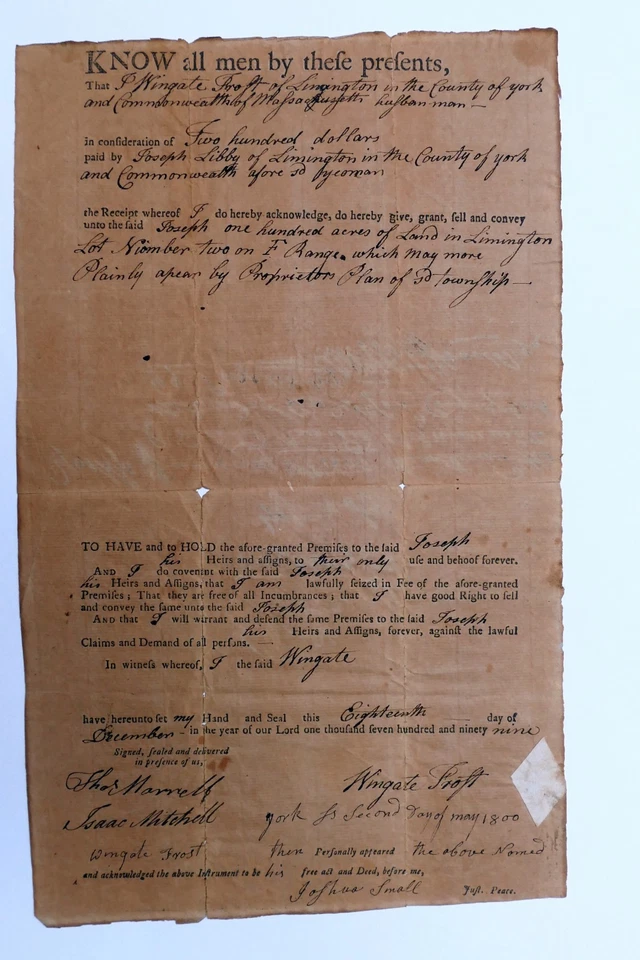 KNOW all men by theſe preſents,
That I Wingate Frost of Limington in the County of york
and Commonwealth of Massachusetts husban man —
in conſideration of Two hundred dollars
paid by Joseph Libby of Limington in the County of york
and Commonwealth afore sd yeoman
the Receipt whereof I do hereby acknowledge, do hereby give, grant, ſell and convey
unto the ſaid Joseph one hundred acres of Land in Limington
Lot Number two on F Range which may more
Plainly apear by Proprietors Plan of sd township —
TO HAVE and to HOLD the afore-granted Premiſes to the ſaid Joseph
his Heirs and aſſigns, to their only uſe and behoof forever.
AND I do covenant with the ſaid Joseph
his Heirs and Aſſigns, that I am lawfully ſeized in Fee of the afore-granted
Premiſes; That they are free of all Incumbrances; that I have good Right to ſell
and convey the ſame unto the ſaid Joseph
AND that I will warrant and defend the ſame Premiſes to the ſaid Joseph
his Heirs and Aſſigns, forever, againſt the lawful
Claims and Demand of all perſons. —
In witneſs whereof, I the ſaid Wingate
have hereunto ſet my Hand and Seal this Eighteenth day of
December in the year of our Lord one thouſand ſeven hundred and ninety nine
Signed, ſealed and delivered
in preſence of us,
Thos Wingate Frost
Isaac Mitchell york Ss Second Day of may 1800
Wingate Frost then Perſonally appeared the above Named
and acknowledged the above Inſtrument to be his free act and Deed, before me,
Joshua Small Juſt. Peace.